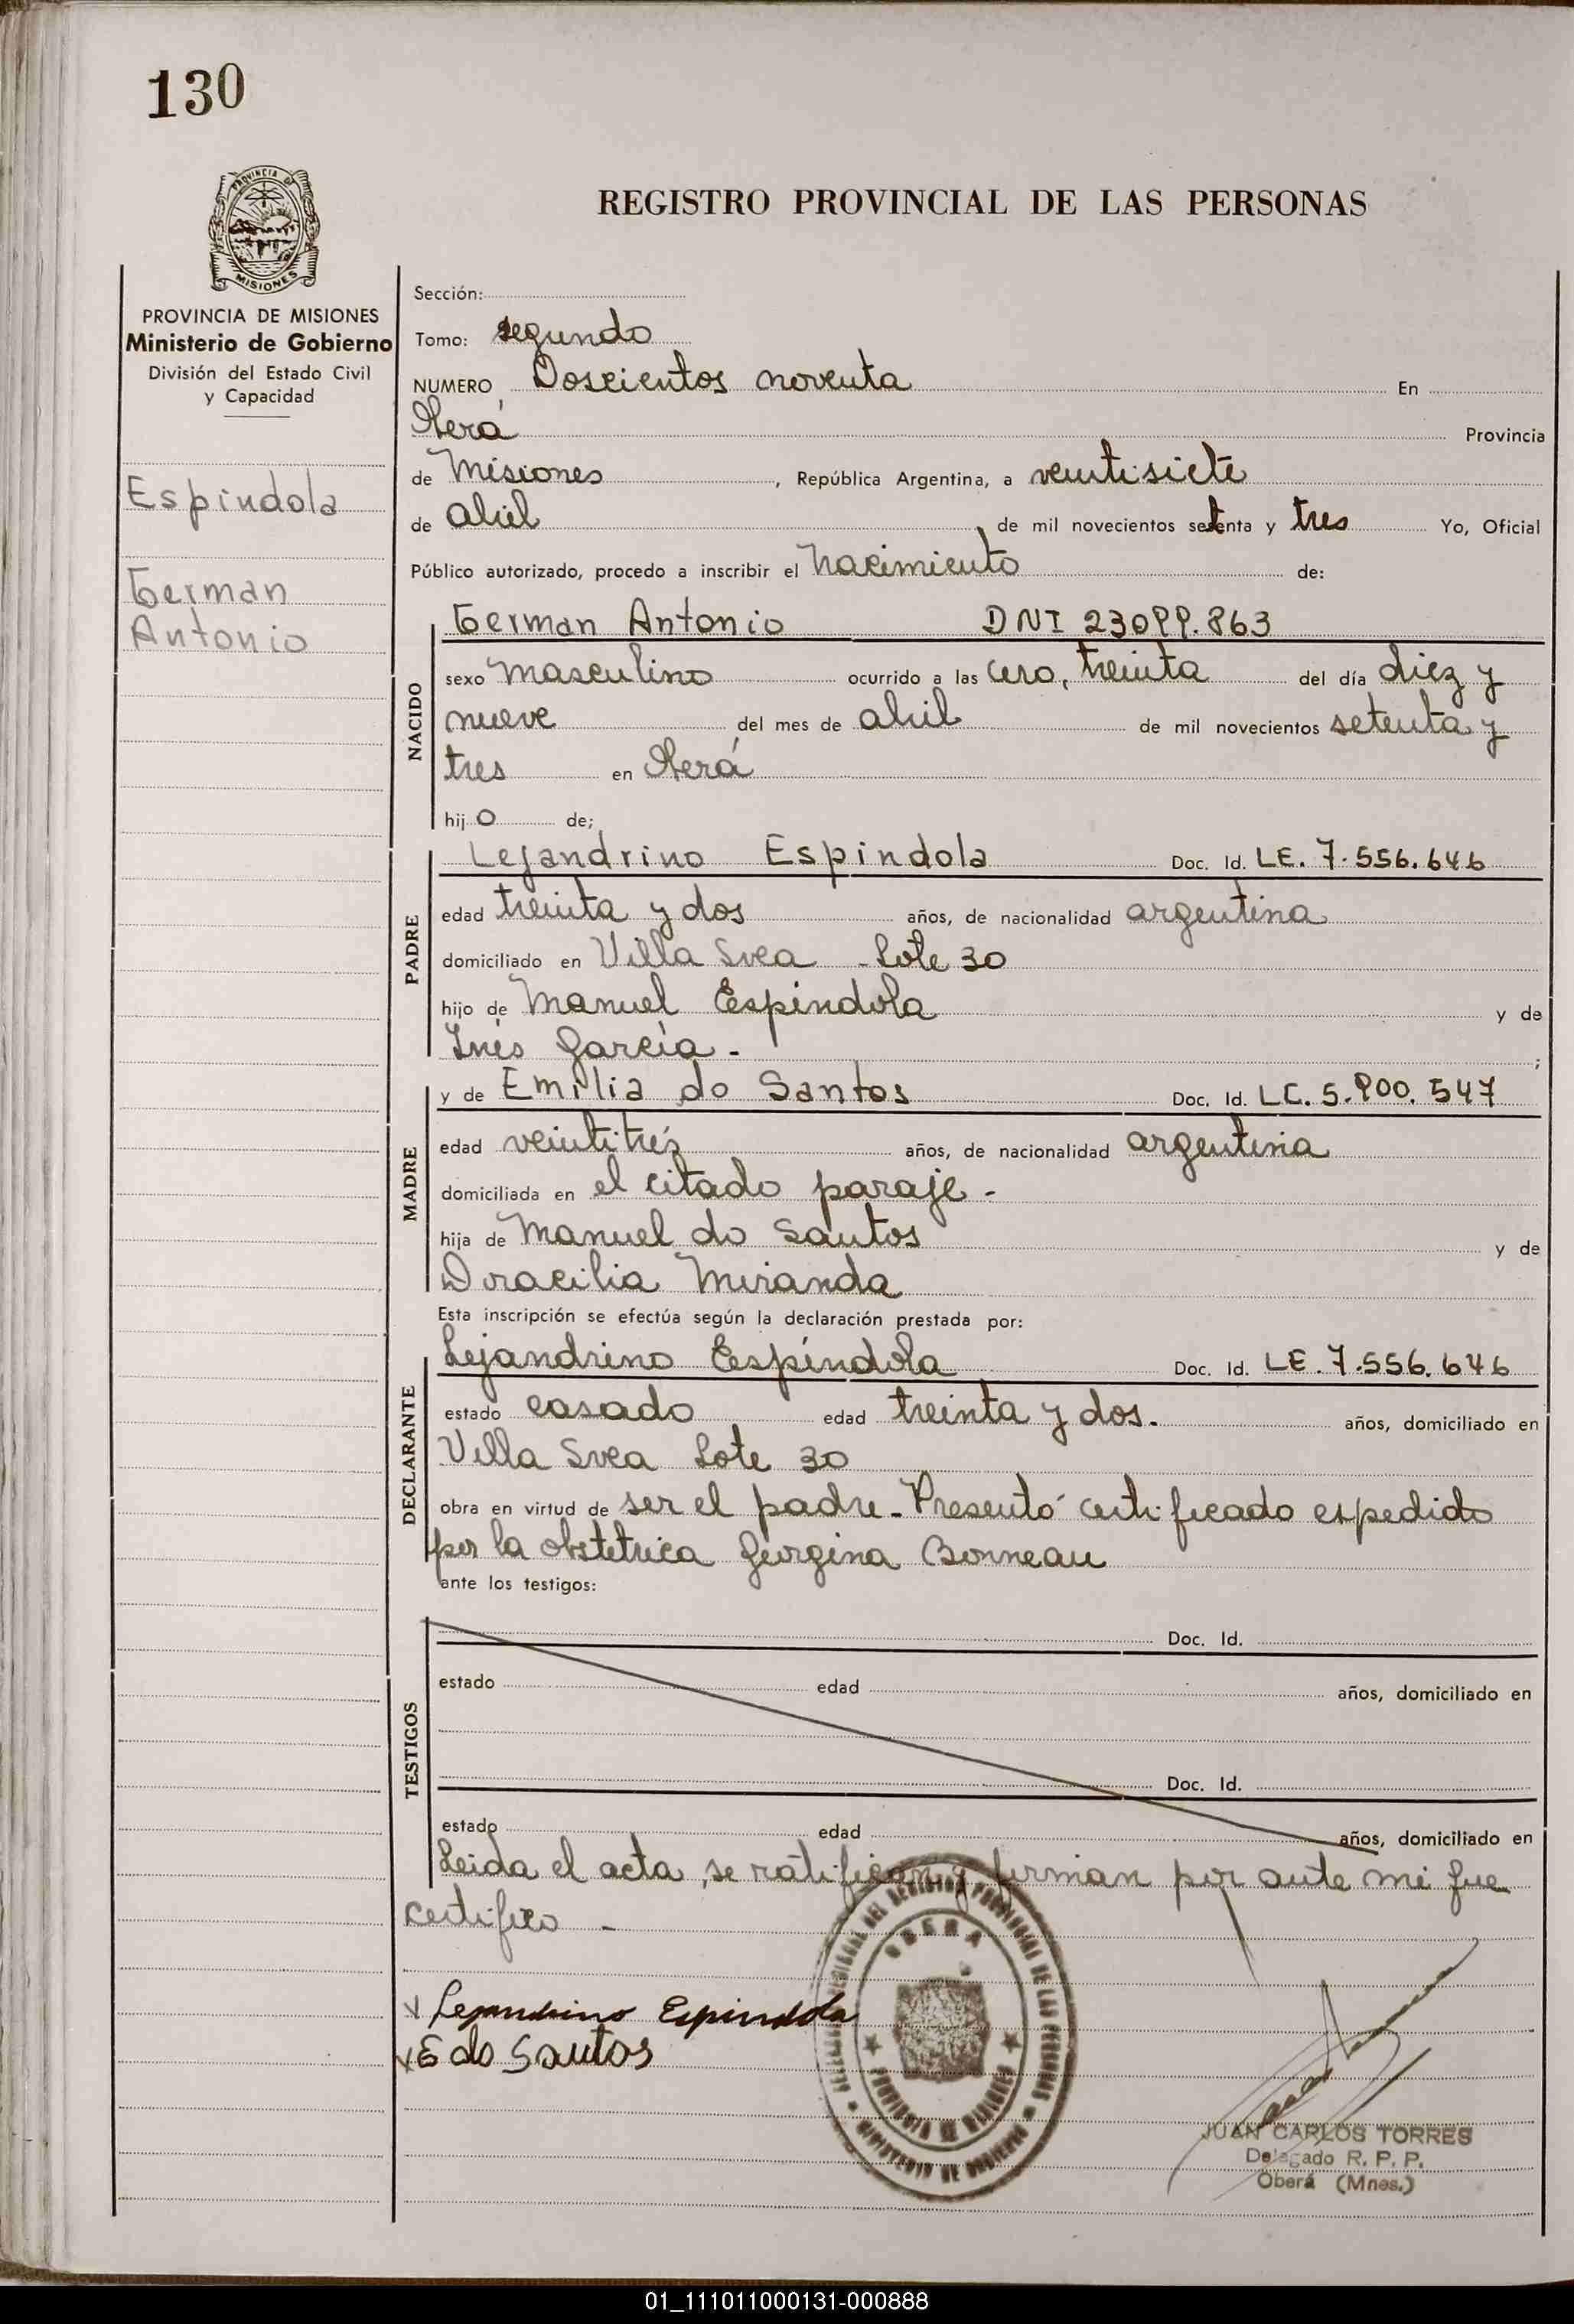 130
PROVINCIA DE
MISIONES
REGISTRO PROVINCIAL DE LAS PERSONAS
PROVINCIA DE MISIONES
Ministerio de Gobierno
División del Estado Civil
y Capacidad
Espindola
German
Antonio
Sección:
Tomo: segundo
NUMERO Doscientos noventa En
Oberá Provincia
de Misiones, República Argentina, a veintisiete
de abril de mil novecientos setenta y tres Yo, Oficial
Público autorizado, procedo a inscribir el Nacimiento de:
NACIDO
German Antonio DNI 23099.863
sexo masculino ocurrido a las cero, treinta del día diez y
nueve del mes de abril de mil novecientos setenta y
tres en Oberá
hijo de;
PADRE
Lejandrino Espindola Doc. Id. LE. 7.556.646
edad treinta y dos años, de nacionalidad argentina
domiciliado en Villa Svea - Lote 30
hijo de Manuel Espindola y de
Inés García - ;
MADRE
y de Emilia do Santos Doc. Id. LC. 5.900.547
edad veintitrés años, de nacionalidad argentina
domiciliada en el citado paraje -
hija de Manuel do Santos y de
Doracilia Miranda
Esta inscripción se efectúa según la declaración prestada por:
DECLARANTE
Lejandrino Espíndola Doc. Id. LE. 7.556.646
estado casado edad treinta y dos. años, domiciliado en
Villa Svea Lote 30
obra en virtud de ser el padre - Presentó certificado expedido
por la obstetrica Georgina Bonneau
ante los testigos:
TESTIGOS
Doc. Id.
estado edad años, domiciliado en
Doc. Id.
estado edad años, domiciliado en
Leida el acta, se ratifican y firman por ante mi que
certifico -
x Lejandrino Espindola
x E do Santos
OBERA
PROVINCIA DE MISIONES
MINISTERIO DE GOBIERNO
JUAN CARLOS TORRES
Delegado R. P. P.
Oberá (Mnes.)
01_111011000131-000888